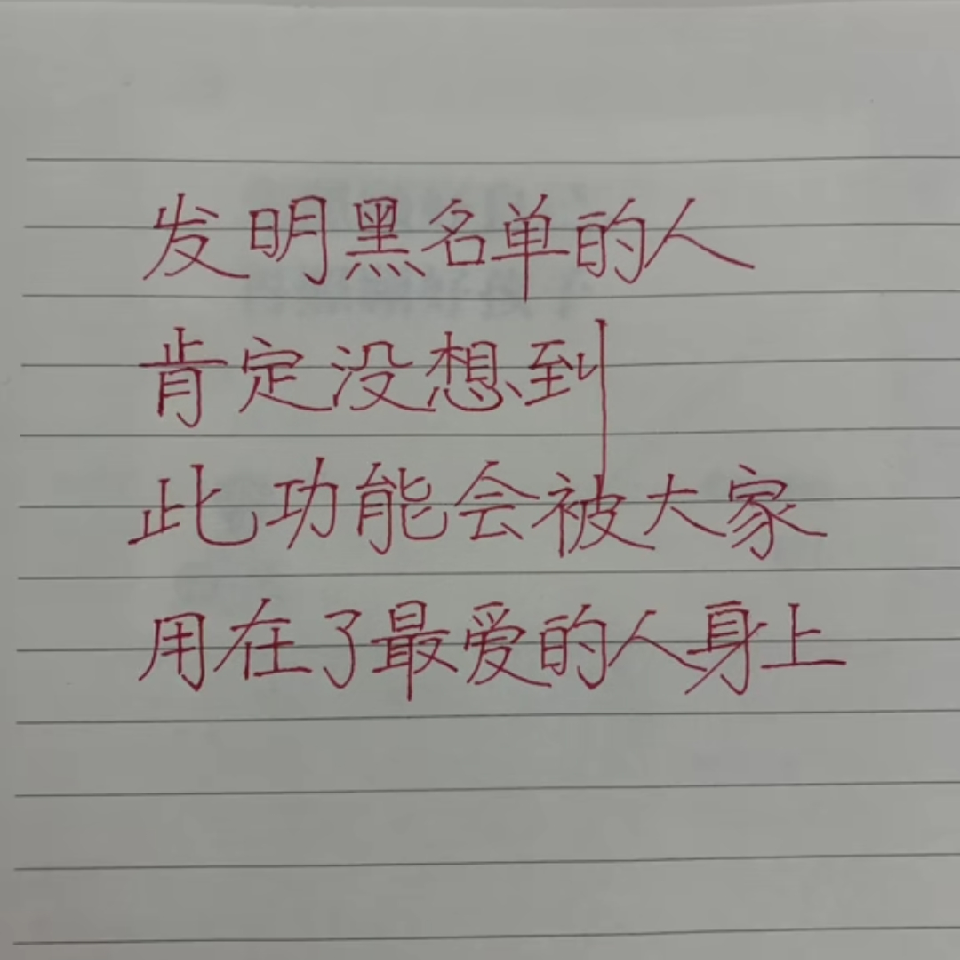 发明黑名单的人
肯定没想到
此功能会被大家
用在了最爱的人身上